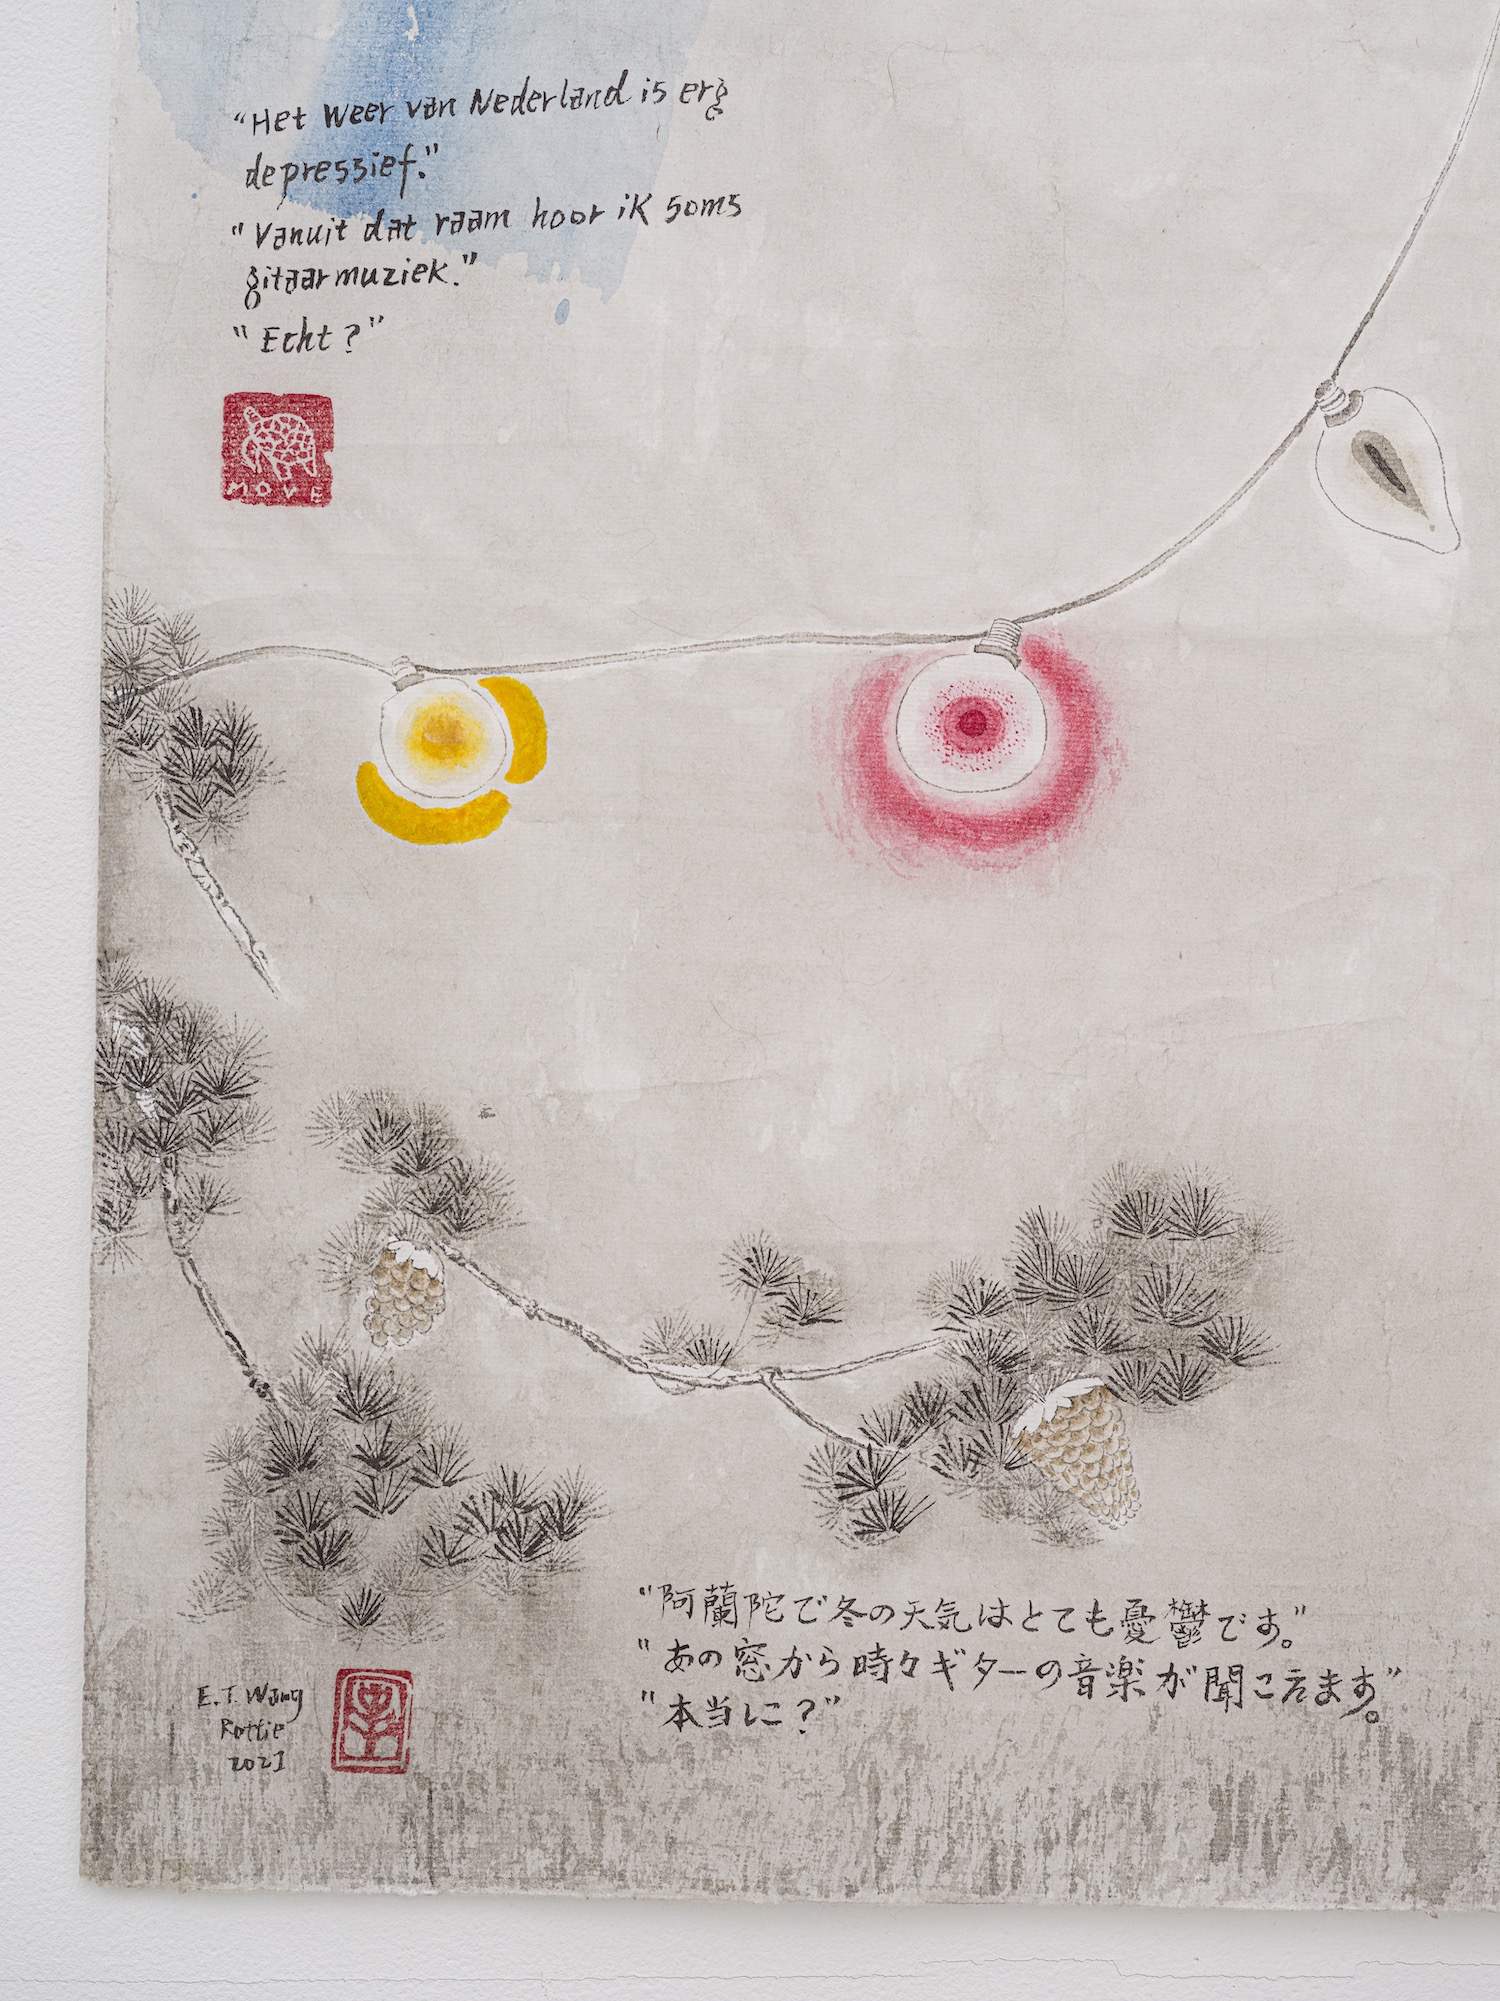 “Het weer van Nederland is erg
depressief.”
“Vanuit dat raam hoor ik soms
gitaarmuziek.”
“Echt?”
MOVE
“阿蘭陀で冬の天気はとても憂鬱です。”
“あの窓から時々ギターの音楽が聞こえます。”
“本当に？”
E.T. Wang
2021